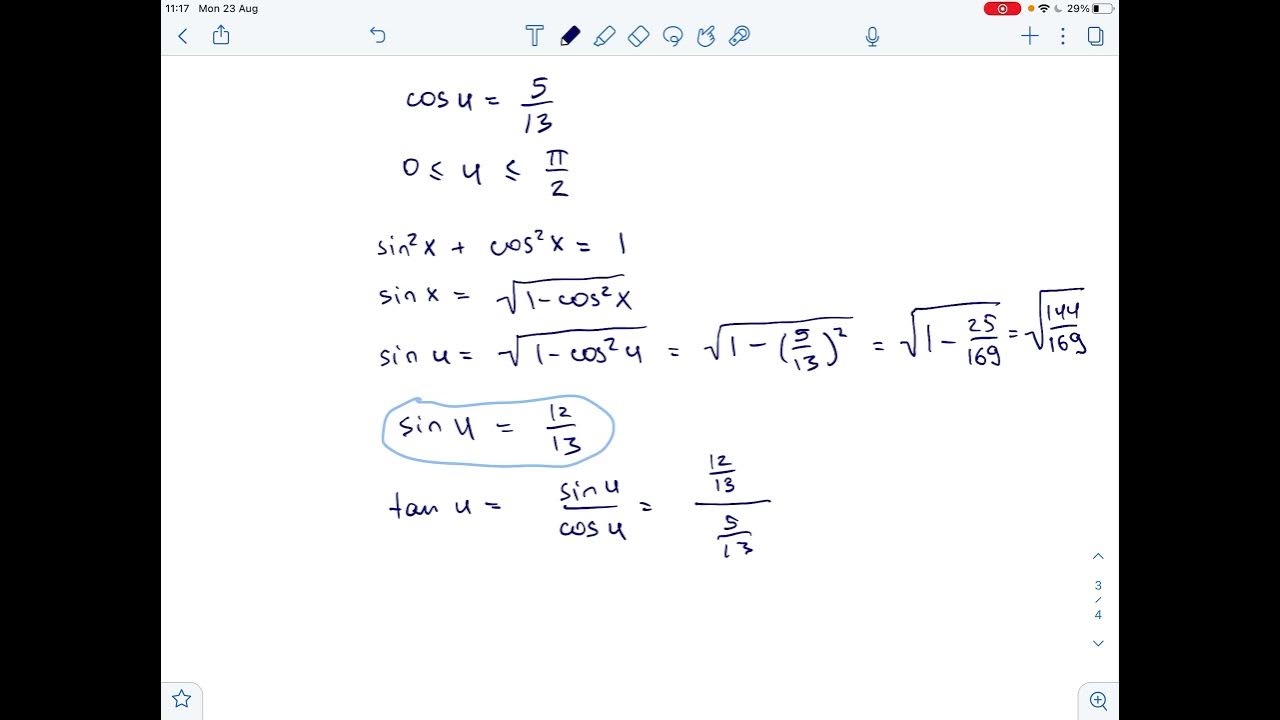 11:17 Mon 23 Aug 29%
T
cos u = 5/13
0 ≤ u ≤ π/2
sin²x + cos²x = 1
sin x = √(1-cos²x)
sin u = √(1-cos²u) = √(1-(5/13)²) = √(1-25/169) = √(144/169)
sin u = 12/13
tan u = sin u/cos u = (12/13)/(5/13)
3
/
4